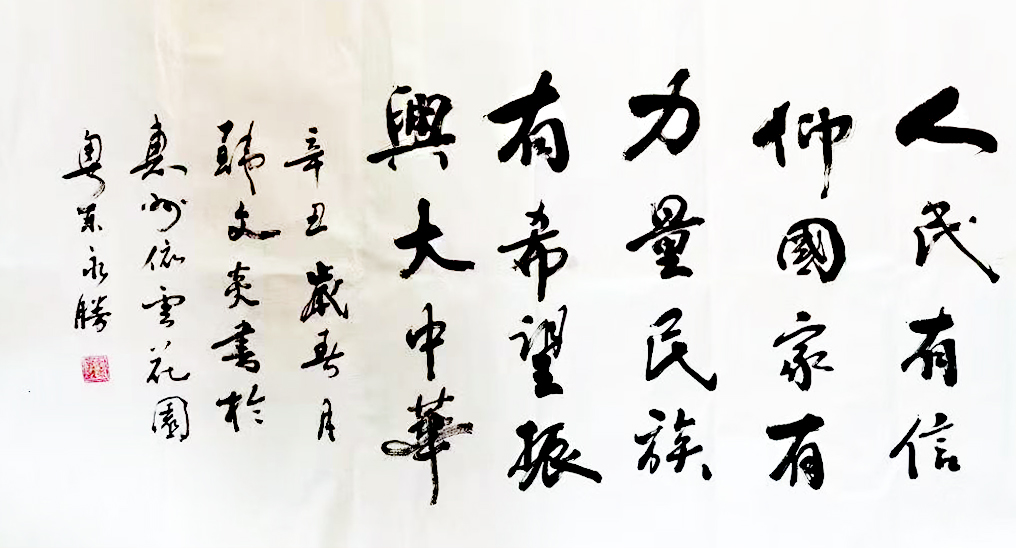 人民有信
仰國家有
力量民族
有希望振
興大中華
辛丑歲春月
文炎書於
惠州依雲花園
粤 永勝